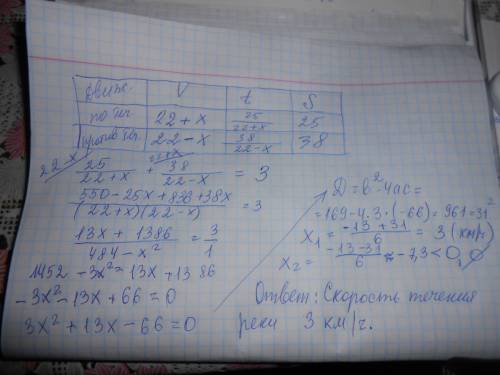 движ. V t S
по теч. 22+x 25/(22+x) 25
против теч. 22-x 38/(22-x) 38
22-x 22+x
25/(22+x) + 38/(22-x) = 3
(550-25x+836+38x)/((22+x)(22-x)) = 3
(13x+1386)/(484-x²) = 3/1
1452-3x²=13x+1386
-3x²-13x+66=0
3x²+13x-66=0
D=b²-4ac=
=169-4.3·(-66)=961=31²
x₁=(-13+31)/6 = 3 (км/ч)
x₂=(-13-31)/6 ≈ -7,3<0,
Ответ: Скорость течения
реки 3 км/г.